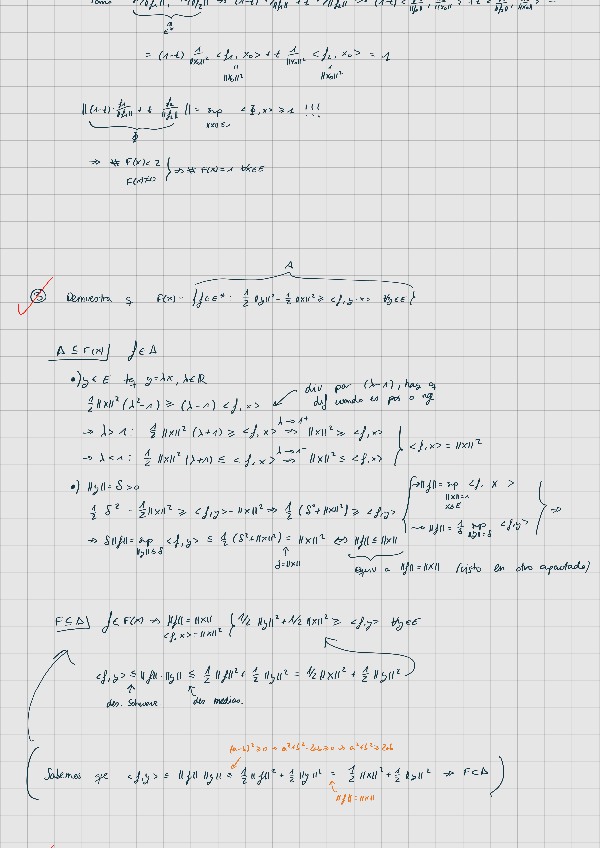 = (1-t) 1/‖x₀‖² <f₁, x₀> + t 1/‖x₀‖² <f₂, x₀> = 1
‖x₀‖² ‖x₀‖²
‖(1-t) f₁/‖f₁‖ + t f₂/‖f₂‖‖ = sup <Φ, x> ≥ 1 !!!
Φ
⇒ # F(x) < 2
F(x) ≠ ∅ } ⇒ # F(x) = 1 ∀x∈E
A
③ Demuestra q F(x) = {f∈E* : 1/2 ‖y‖² - 1/2 ‖x‖² ≥ <f, y-x> ∀y∈E}
A ⊆ F(x) f∈A
•) y∈E tq y=λx, λ∈ℝ
1/2 ‖x‖² (λ²-1) ≥ (λ-1) <f, x> div por (λ-1), hay q
→ λ>1: 1/2 ‖x‖² (λ+1) ≥ <f, x> λ→1⁺ ⇒ ‖x‖² ≥ <f, x>
→ λ<1: 1/2 ‖x‖² (λ+1) ≤ <f, x> λ→1⁻ ⇒ ‖x‖² ≤ <f, x> } <f, x> = ‖x‖²
•) ‖y‖ = δ > 0
1/2 δ² - 1/2 ‖x‖² ≥ <f, y> - ‖x‖² ⇒ 1/2 (δ² + ‖x‖²) ≥ <f, y> { → ‖f‖ = sup <f, x>
‖x‖=1
x∈E
→ ‖f‖ = 1/δ sup <f, y> } ⇒
‖y‖=δ
⇒ δ‖f‖ = sup <f, y> ≤ 1/2 (δ² + ‖x‖²) = ‖x‖² ⇔ ‖f‖ ≤ ‖x‖
‖y‖≤δ
δ=‖x‖
Equiv a ‖f‖ = ‖x‖ (visto en otro apartado)
F ⊆ A f∈F(x) ⇒ ‖f‖ = ‖x‖
<f, x> = ‖x‖² } 1/2 ‖y‖² + 1/2 ‖x‖² ≥ <f, y> ∀y∈E
<f, y> ≤ ‖f‖·‖y‖ ≤ 1/2 ‖f‖² + 1/2 ‖y‖² = 1/2 ‖x‖² + 1/2 ‖y‖²
des. Schwarz des medias.
(a-b)² ≥ 0 → a²+b²-2ab ≥ 0 → a²+b² ≥ 2ab
Sabemos que <f, y> ≤ ‖f‖ ‖y‖ ≤ 1/2 ‖f‖² + 1/2 ‖y‖² = 1/2 ‖x‖² + 1/2 ‖y‖² ⇒ F⊂A
‖f‖ = ‖x‖